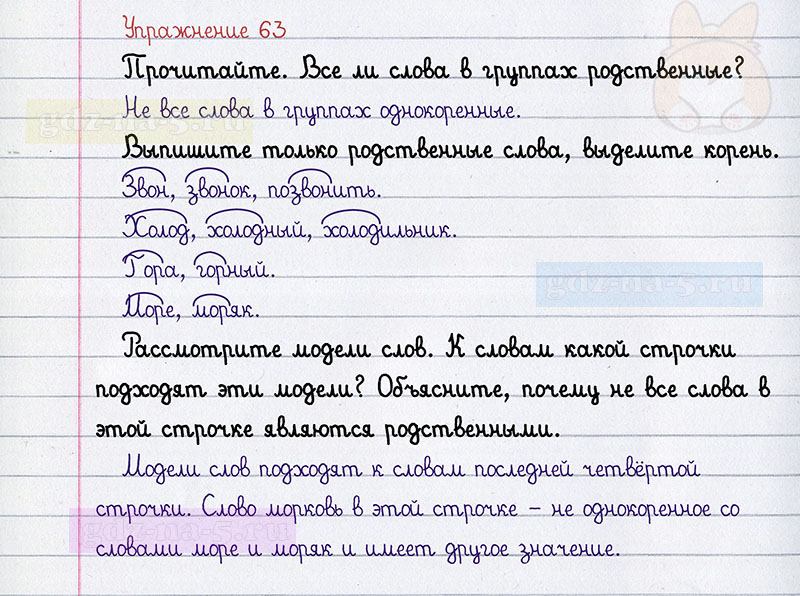 Упражнение 63
Прочитайте. Все ли слова в группах родственные?
Не все слова в группах однокоренные.
gdz-na-5.ru
Выпишите только родственные слова, выделите корень.
Звон, звонок, позвонить.
Холод, холодный, холодильник.
Гора, горный.
gdz-na-5.ru
Море, моряк.
Рассмотрите модели слов. К словам какой строчки
подходят эти модели? Объясните, почему не все слова в
этой строчке являются родственными.
Модели слов подходят к словам последней четвёртой
строчки. Слово морковь в этой строчке – не однокоренное со
gdz-na-5.ru
словами море и моряк и имеет другое значение.